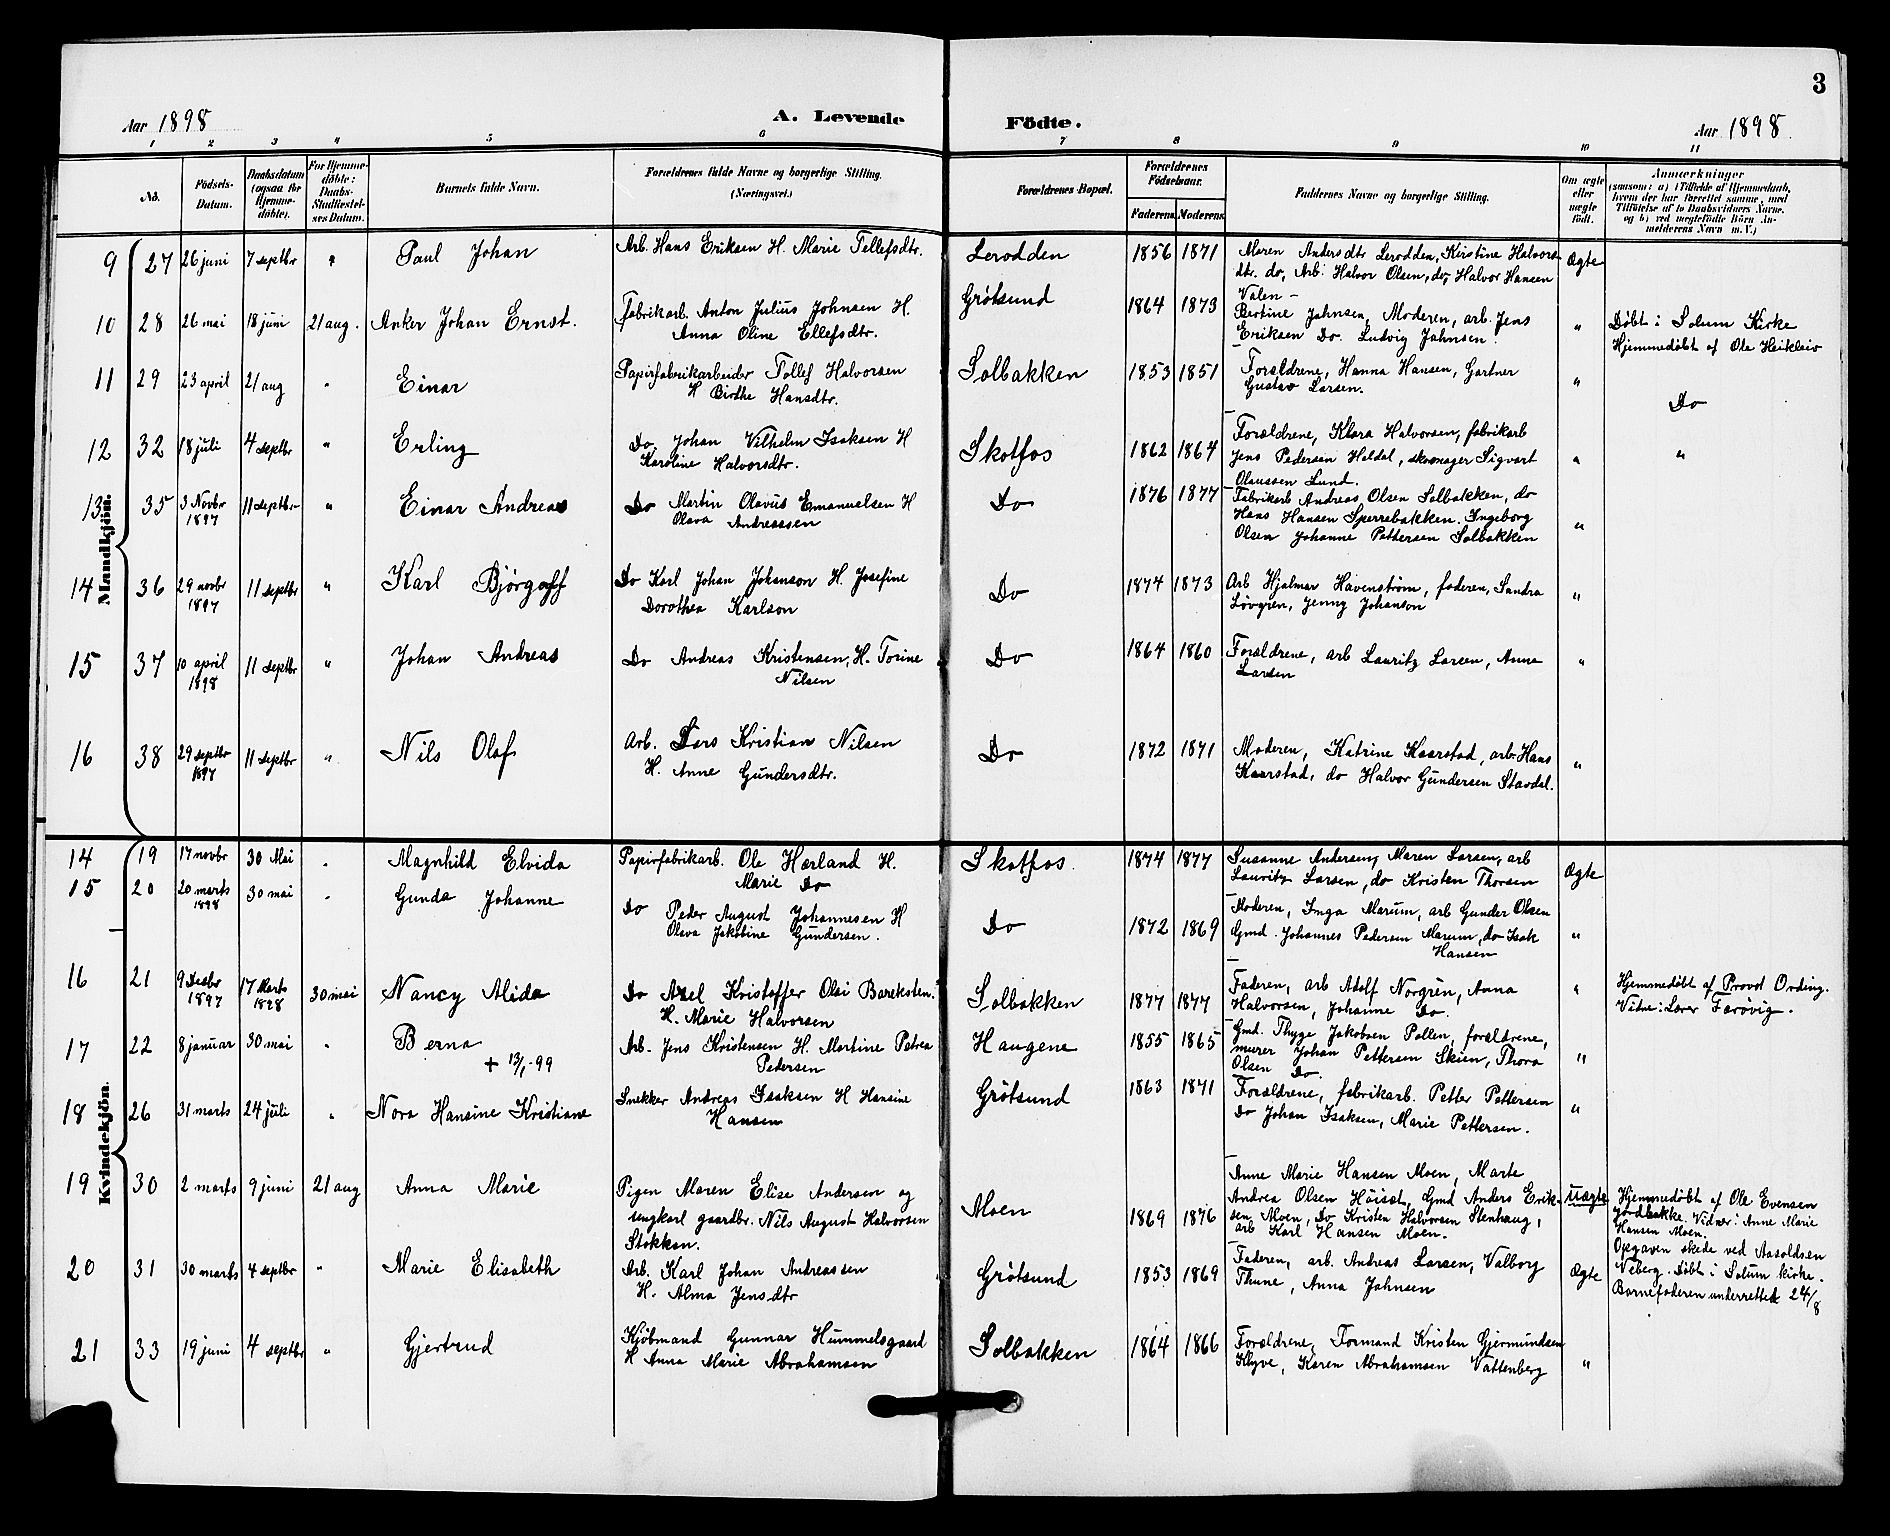 3
Aar 1898
A. Levende
Födte.
Aar 1898.
1 2 3 4 5 6 7 8 9 10 11
No.
Födsels-Datum.
Daabsdatum (ogsaa for Hjemmedöbte).
For Hjemmedöbte: Daabs-Stadfæstelses Datum.
Barnets fulde Navn.
Forældrenes fulde Navne og borgerlige Stilling. (Næringsvei.)
Forældrenes Bopæl.
Forældrenes Födselsaar.
Faderens. Moderens.
Faddernes Navne og borgerlige Stilling.
Om ægte eller uægte födt.
Anmærkninger
(saasom: a) i Tilfælde af Hjemmedaab, hvem der har forrettet samme, med Tilföielse af to Daabsvidners Navne. og b) ved uægtefödte Börn Anmelderens Navn m. V.)
Mandkjön.
9 27 26 juni 7 septbr " Paul Johan
Arb. Hans Eriksen H. Marie Tellefsdtr.
Lerodden 1856 1871
Maren Andersdtr Lerodden, Kirstine Halvors
dtr. do, Arb. Halvor Olsen, do, Halvor Hansen
Valen –
Ægte
10 28 26 mai 18 juni 21 aug. Anker Johan Ernst.
Fabrikarb. Anton Julius Johnsen H.
Anna Oline Ellefsdtr.
Grøtsund 1864 1873
Bertine Johnsen, Moderen, arb. Jens
Eriksen Do. Ludvig Johnsen.
"
Døbt i Solum Kirke
Hjemmedøbt af Ole Heikleiv
11 29 23 april 21 aug " Einar
Papirfabrikarbeider Tollef Halvorsen
H Birthe Hansdtr.
Solbakken 1853 1851
Forældrene, Hanna Hansen, Gartner
Gustav Larsen.
"
Do
12 32 18 juli 4 septbr " Erling
Do. Johan Vilhelm Isaksen H
Karoline Halvorsdtr.
Skotfos 1862 1864
Forældrene, Klara Halvorsen, fabrikarb
Jens Pedersen Haldal, skomager Sigvart
Olaussen Lund.
"
"
13 35 3 Novbr 1897 11 septbr " Einar Andreas
Do Martin Olavus Emanuelsen H
Olava Andreassen
Do 1876 1877
Fabrikarb Andreas Olsen Solbakken, do
Hans Hansen Sperrebakken. Ingeborg
Olsen Johanne Pettersen Solbakken
"
14 36 29 novbr 1897 11 septbr " Karl Björgolf
Do Karl Johan Johanson H. Josefine
Dorothea Karlson
Do 1874 1873
Arb Hjalmar Havenstrøm, faderen, Sandra
Løvgren, Jenny Johanson
"
15 37 10 april 1898 11 septbr " Johan Andreas
Do Andreas Kristensen, H. Torine
Nilsen
Do 1864 1860
Forældrene, arb Lauritz Larsen, Anne
Larsen
"
16 38 29 septbr 1897 11 septbr " Nils Olaf
Arb. Lars Kristian Nilsen
H. Anne Gundersdtr.
Do 1872 1871
Moderen, Katrine Kaarstad, arb. Hans
Kaarstad, do Halvor Gundersen Stavdal.
"
Kvindekjön.
14 19 17 novbr 30 Mai " Magnhild Elvida
Papirfabrikarb. Ole Hærland H.
Marie Do
Skotfos. 1874 1877
Susanne Andersen, Maren Larsen, arb
Lauritz Larsen, do Kristen Thorsen
Ægte
15 20 20 marts 1898 30 mai " Gunda Johanne
Do Peder August Johannesen H
Olava Jakobine Gundersen.
Do 1872 1869
Moderen, Inga Marum, arb Gunder Olsen
Gmd. Johannes Pedersen Marum, do Isak
Hansen
"
16 21 9 Decbr 1897 17 Marts 1898 30 mai Nancy Alida
Do Axel Kristoffer Olsi Bareksten.
H. Marie Halvorsen
Solbakken 1877 1877
Faderen, arb Adolf Norgrèn, Anna
Halvorsen, Johanne Do.
"
Hjemmedøbt af Provst Ording.
Vidne: Lærer Farøvig.
17 22 8 januar 30 mai " Berna
+ 13/1-99
Arb. Jens Kristensen H. Martine Petrea
Pedersen
Haugene 1855 1865
Gmd. Thyge Jakobsen Pollen, forældrene,
murer Johan Pettersen Skien, Thora
Olsen Do.
"
18 26 31 marts 24 juli " Nora Hansine Kristiane
Snekker Andreas Isaksen H Hansine
Hansen
Grøtsund 1863 1871
Forældrene, fabrikarb. Petter Pettersen
Do Johan Isaksen, Marie Pettersen.
"
19 30 2 marts 9 juni 21 aug Anna Marie
Pigen Maren Elise Andersen og
ungkarl gaardbr. Nils August Halvorsen
Stokken.
Moen 1869 1876
Anne Marie Hansen Moen, Marte
Andrea Olsen Høiset, Gmd Anders Erik-
sen Moen, Do Kristen Halvorsen Stenhaug,
arb Karl Hansen Moen.
Uægte
Hjemmedøbt af Ole Evensen
Jordbakke. Vidner: Anne Marie
Hansen Moen.
Opgaven skede ved Aasoldsen
Neberg. Døbt i Solum kirke.
Barnefaderen underrettet 24/8
20 31 30 marts 4 septbr " Marie Elisabeth
Arb. Karl Johan Andreassen
H. Alma Jensdtr
Grøtsund 1853 1869
Faderen, arb. Andreas Larsen, Valborg
Thune, Anna Johnsen
Ægte
21 33 19 juni 4 septbr " Gjertrud
Kjøbmand Gunnar Hummelsgaard
H Anna Marie Abrahamson
Solbakken 1864 1866
Forældrene, Formand Kristen Gjermundsen
Klyve, Karen Abrahamsen Vattenberg
"